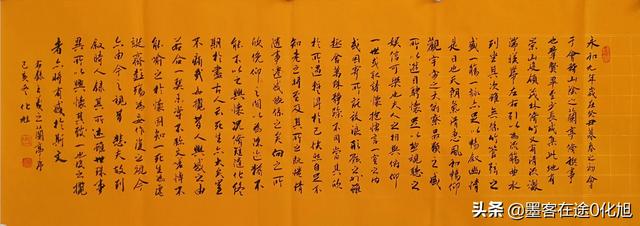 永和九年歲在癸丑暮春之初會
于會稽山陰之蘭亭脩禊事
也群賢畢至少長咸集此地有
崇山峻領茂林脩竹又有清流激
湍暎帶左右引以為流觴曲水
列坐其次雖無絲竹管弦之
盛一觴一詠亦足以暢敘幽情
是日也天朗氣清惠風和暢仰
觀宇宙之大俯察品類之盛
所以遊目騁懷足以極視聽之
娛信可樂也夫人之相與俯仰
一世或取諸懷抱悟言一室之內
或因寄所託放浪形骸之外雖
趣舍萬殊靜躁不同當其欣
於所遇暫得於己快然自足不
知老之將至及其所之既惓情
隨事遷感慨係之矣向之所
欣俛仰之間以為陳迹猶不
能不以之興懷況脩短隨化終
期於盡古人云死生亦大矣豈
不痛哉每攬昔人興感之由
若合一契未嘗不臨文嗟悼不
能喻之於懷固知一死生為虛
誕齊彭殤為妄作後之視今
亦由今之視昔 悲夫故列
敘時人錄其所述雖世殊事
異所以興懷其致一也後之攬
者亦將有感於斯文
右錄王羲之蘭亭序
己亥 化旭
头条 @墨客在途0化旭